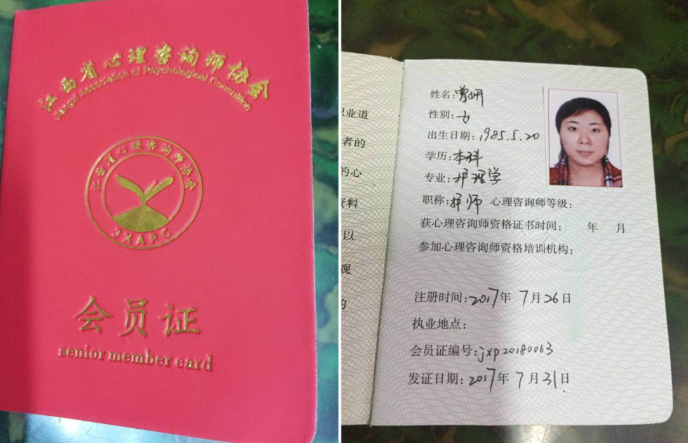 江西省心理咨询师协会
Jiangxi Association of Psychological Consulting
江西省心理咨询师协会
JXAPC
会员证
senior member card
职业道
者的
的心
资料
以
观
的
姓名:曾妍
性别:女
出生日期:1985.5.20
学历:本科
专业:护理学
职称:护师 心理咨询师等级:
获心理咨询师资格证书时间: 年 月
参加心理咨询师资格培训机构:
注册时间:2017年7月26日
执业地点:
会员证编号:jxp20180063
发证日期:2017年7月31日